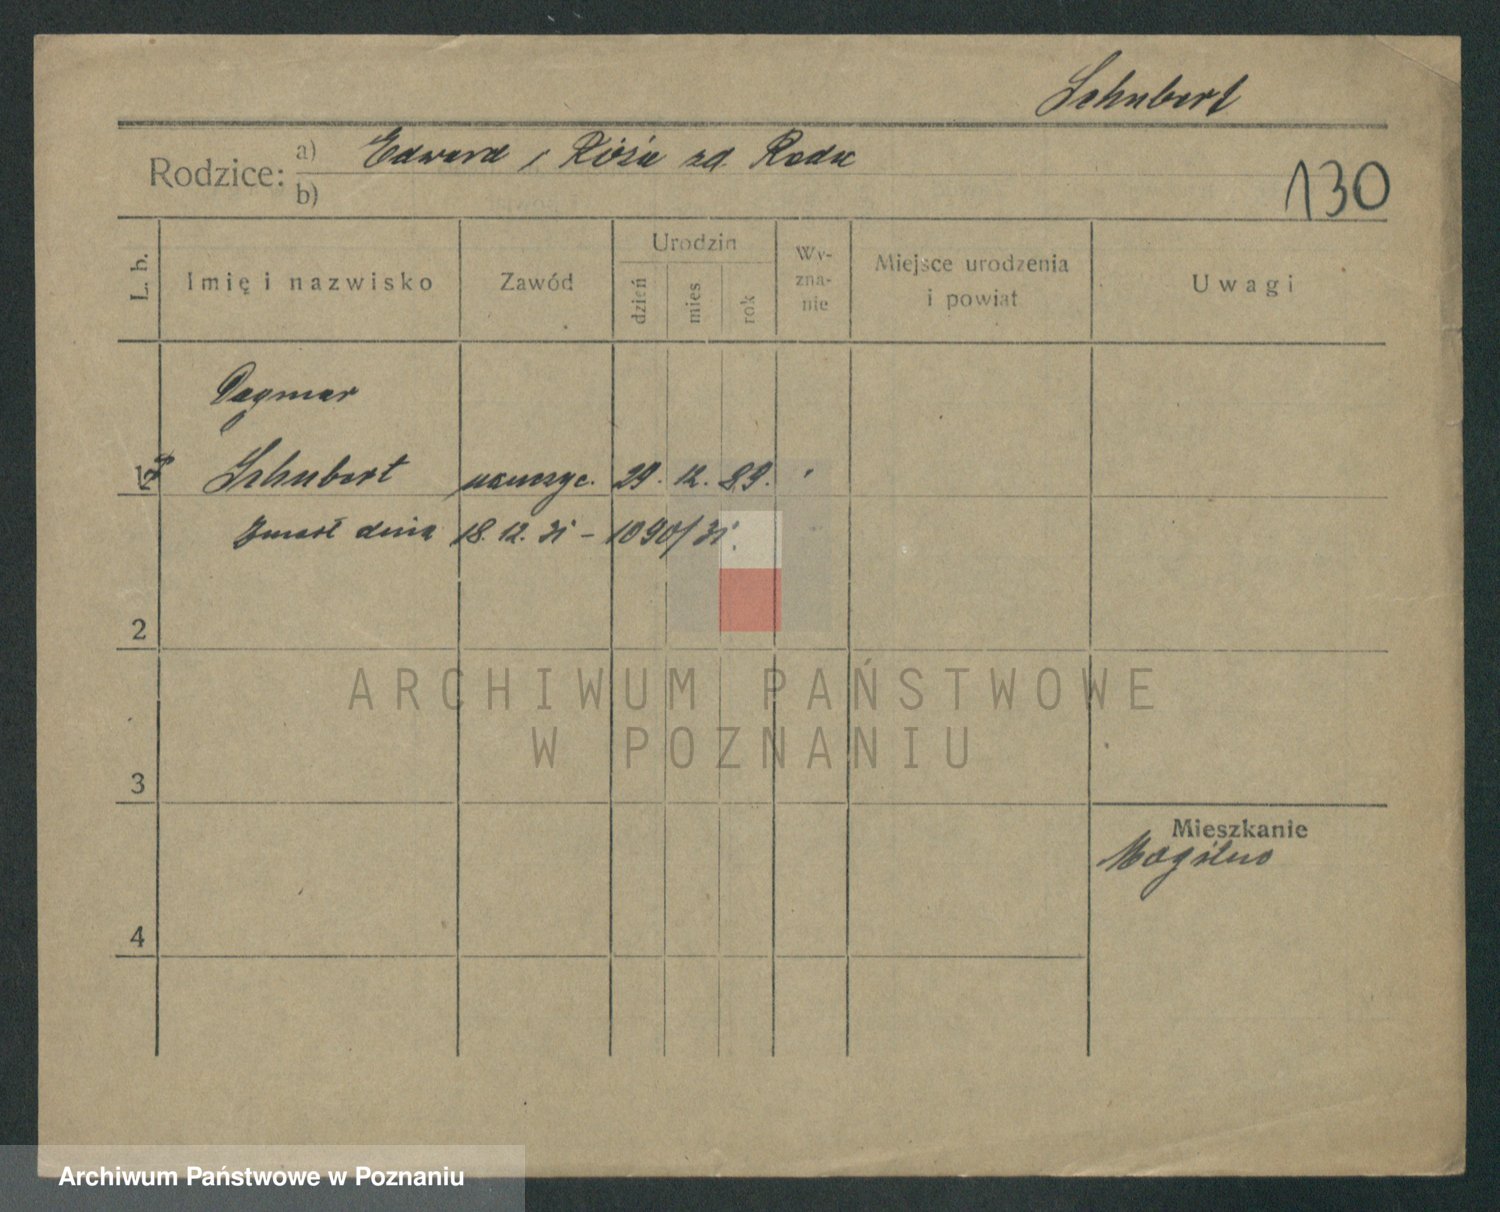 Schubert
Rodzice: a) Edward i Róża zd. Rade
b)
130
L. b. Imię i nazwisko Zawód Urodzin dzień mies rok Wyznanie Miejsce urodzenia i powiat Uwagi
Dagmar
1 Schubert nauczyc. 29. 12. 89.
Zmarł dnia 18. 12. 31 – 1090/31.
2
ARCHIWUM PAŃSTWOWE
W POZNANIU
3
Mieszkanie
Mogilno
4
Archiwum Państwowe w Poznaniu